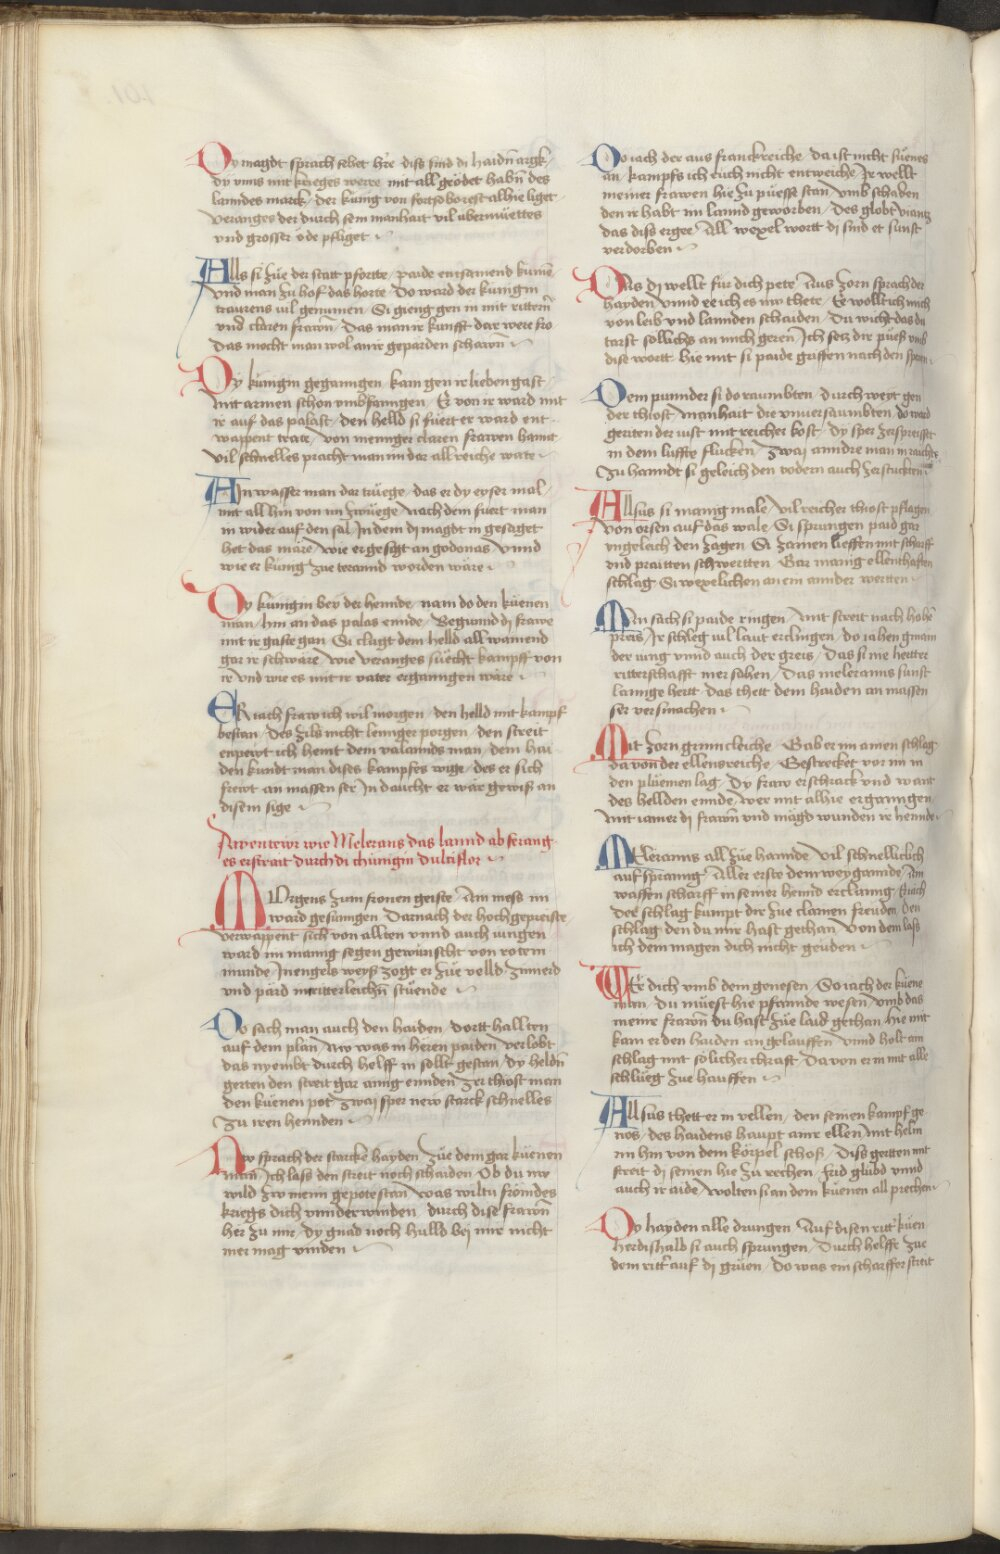 Dy magdt sprach sehet herre diss sind di haidn argk
dy unns mit krieges werre mit all grödet habn des
lanndes marck / der kunig von fortseborest alhie liget
veranges der durch sein manhait vil ubermüettes
vnd grosser öde pfliget
Alls si züe der statt pfortte / paide entsamend kumen
vnd man zu hof das horte / Do ward der kunigin
traurens vil genumen / Si gieng gen in mit rittern
vnd claren frawn / Das man ir kunfft dar were fro
das mocht man wol an ir geparden schawn
Dy kunigin geganngen / kam gen ir lieben gast
mit armen schon vmbfanngen / Er von ir ward mit
ir auf das palast / den helld si fuert er ward ent
wappent trate / von menniger claren frawen hannt
vil schnelles pracht man im dar all reiche wate
Ain wasser man dar trüege / das er dy eyser mal /
mit all hin von im zwüege / nach dem fuert man
in wider auf den sal / In dem dj magdt in gesaget
het das märe / wie er gesigt an godonas vnnd
wie er kunig zue terannd worden wäre
Dy kunigin bey der hennde / nam do den küenen
man / hin an das palas ennde / Begunnd dj frawe
mit ir gaste gan / Si clagt dem helld all wainend
gar ir schwäre / wie veranges süecht kampff von
ir vnd wie es mit ir vater erganngen wäre
Er iach fraw ich wil morgen / den helld mit kampf
bestan / des zils nicht lennger porgen / den streit
enpewt ich heint dem valannds man / dem hai
den kundt man dises kampfes wige / des er sich
frewt an massen ser / In daucht er wär gewiss an
disem sige
Awentewr wie Melerans das lannd ab ferang
es erstrait durch di chunigin dulciflor
Morgens zum fronen geiste / Ain mess im
ward gesunngen / Darnach der hochgepreiste
verwappent sich von allten vnnd auch iungen
ward im manig segen gewunscht von rotem
munde / In engels weys zogt er züe velld zimierd
vnd pärd im ritterleichn stüende
Do sach man auch den haiden / dortt hallten
auf dem plan / Nw was in heren paiden verlobt
das nyembt durch helff in sollt gestan / dy heldn
gerten den streit gar ainig ennden / zer thiost man
den küenen pot / zwaj sper new starck schnelles
zu iren hennden
Nw sprach der starcke hayden / züe dem gar küenen
man / Ich lass den streit noch schaiden / Ob du mir
wild zw meim gepote stan / was wiltu frömdes
kriegs dich vnnderwinden / durch dise frawn
her zu mir / dy gnad noch hulld bei mir nicht
mer mag vinden
Do iach der aus franckreiche / da ist nicht süenes
an / kampfs ich euch nicht entweiche / Ir wellt
meiner frawen hie zu püesse stan / vmb schaden
den ir habt im lannd geworben / Des globt vianntz
das diss ergee / All wexel wortt dj sind et sunst
verdorben
Das dj wellt für dich pete / Aus zorn sprach der
hayden vnnd ee ich es nw thete / Er wollt ich mich
von leib vnd lannden schaiden / Du wicht das du
tarst sollichs an mich geren / Ich setz dir püess vmb
dise wortt / hie mit si paide griffen nach den speren
Dem punnder si do raumbten / durch weyt gen
der thiost / Manhait die vnuersaumbten / do ward
geriten der iust mit reicher kost / dy sper zerspreisset
in dem luffte flucken / zwaj anndre man in raichte
zu hanndt si geleich den vodern auch zerstuckten
Allsüs si manig male / vil reicher thiost pflagen
von orsen auf das wale / Si sprungen paid gar
vngeleich den zagen / Si zamen lieffen mit scharff
vnd praitten schwertten / Gar manig ellenthafften
schlag / Si wexelichen an ein annder wertten
Man sach si paide ringen / Mit streit nach hohe
preis / Ir schleg vil laut erclingen / do iahen gmain
der iung vnnd auch der greis / Das si nie hertter
ritterschafft mer sahen / Das melerannis sunst
lannge hert / das thett dem haiden an massen
ser versmachen
Mit zorn grimcleiche / Gab er im ainen schlag
da von der ellensreiche / Gestrecket vor im in
den plüemen lag / Dy fraw erschrack vnd want
des hellden ennde / wer mit alhie erganngen
mit iamer dj frawn vnd mägd wunden ir hennde
Meleranns all züe hannde / vil schnelliclich
auf sprannng / Aller erste dem weyganndt / Ain
waffen scharff in seiner hennd erclanng / Er iach
der schlag kumpt dir züe clainen freuden / den
schlag den du mir hast gethan / Von dem lass
ich dem magen dich nicht geuden
Wer dich vmb dem genesen / So iach der küene
man / Du müest hie pfannde wesen / vmb das
meinr frawn du hast züe laid gethan / hie mit
kam er den haiden an gelauffen / vnnd holt ain
schlag mit solicher chraft / Da von er in mit alle
schlueg zue hauffen
Allsüs thett er in vellen / den seinen kampf ge
nos / des haidens haupt ainr ellen / Mit helm
im hin von dem körpel schoss / Diss gertten mit
streit dj seinen hie zu rechen / frid glubd vnnd
auch ir aide / wolten si an dem küenen all prechen
Dy hayden alle drungen / Auf disen ritter küen
herdishalb si auch sprungen / Durch helffe zue
dem ritter auf dj grüen / Do was ein scharffer streit